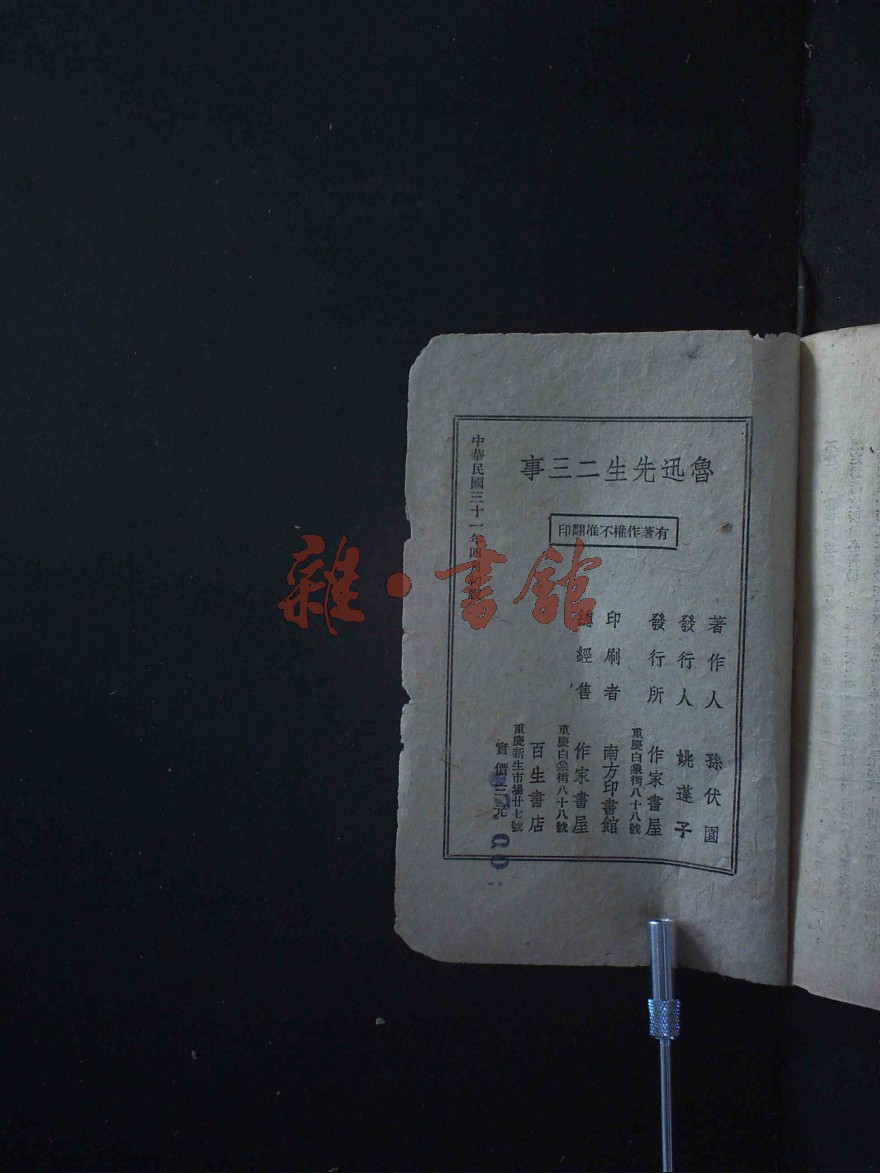 魯迅先生二三事
有著作權不准翻印
著作人 孫伏園
發行人 姚蓬子
發行所 作家書屋
重慶白象街八十八號
印刷者 南方印書館
總經售 作家書屋
重慶白象街八十八號
百生書店
重慶新生市場廿七號
實價三元
中華民國三十一年四月
雜·書館